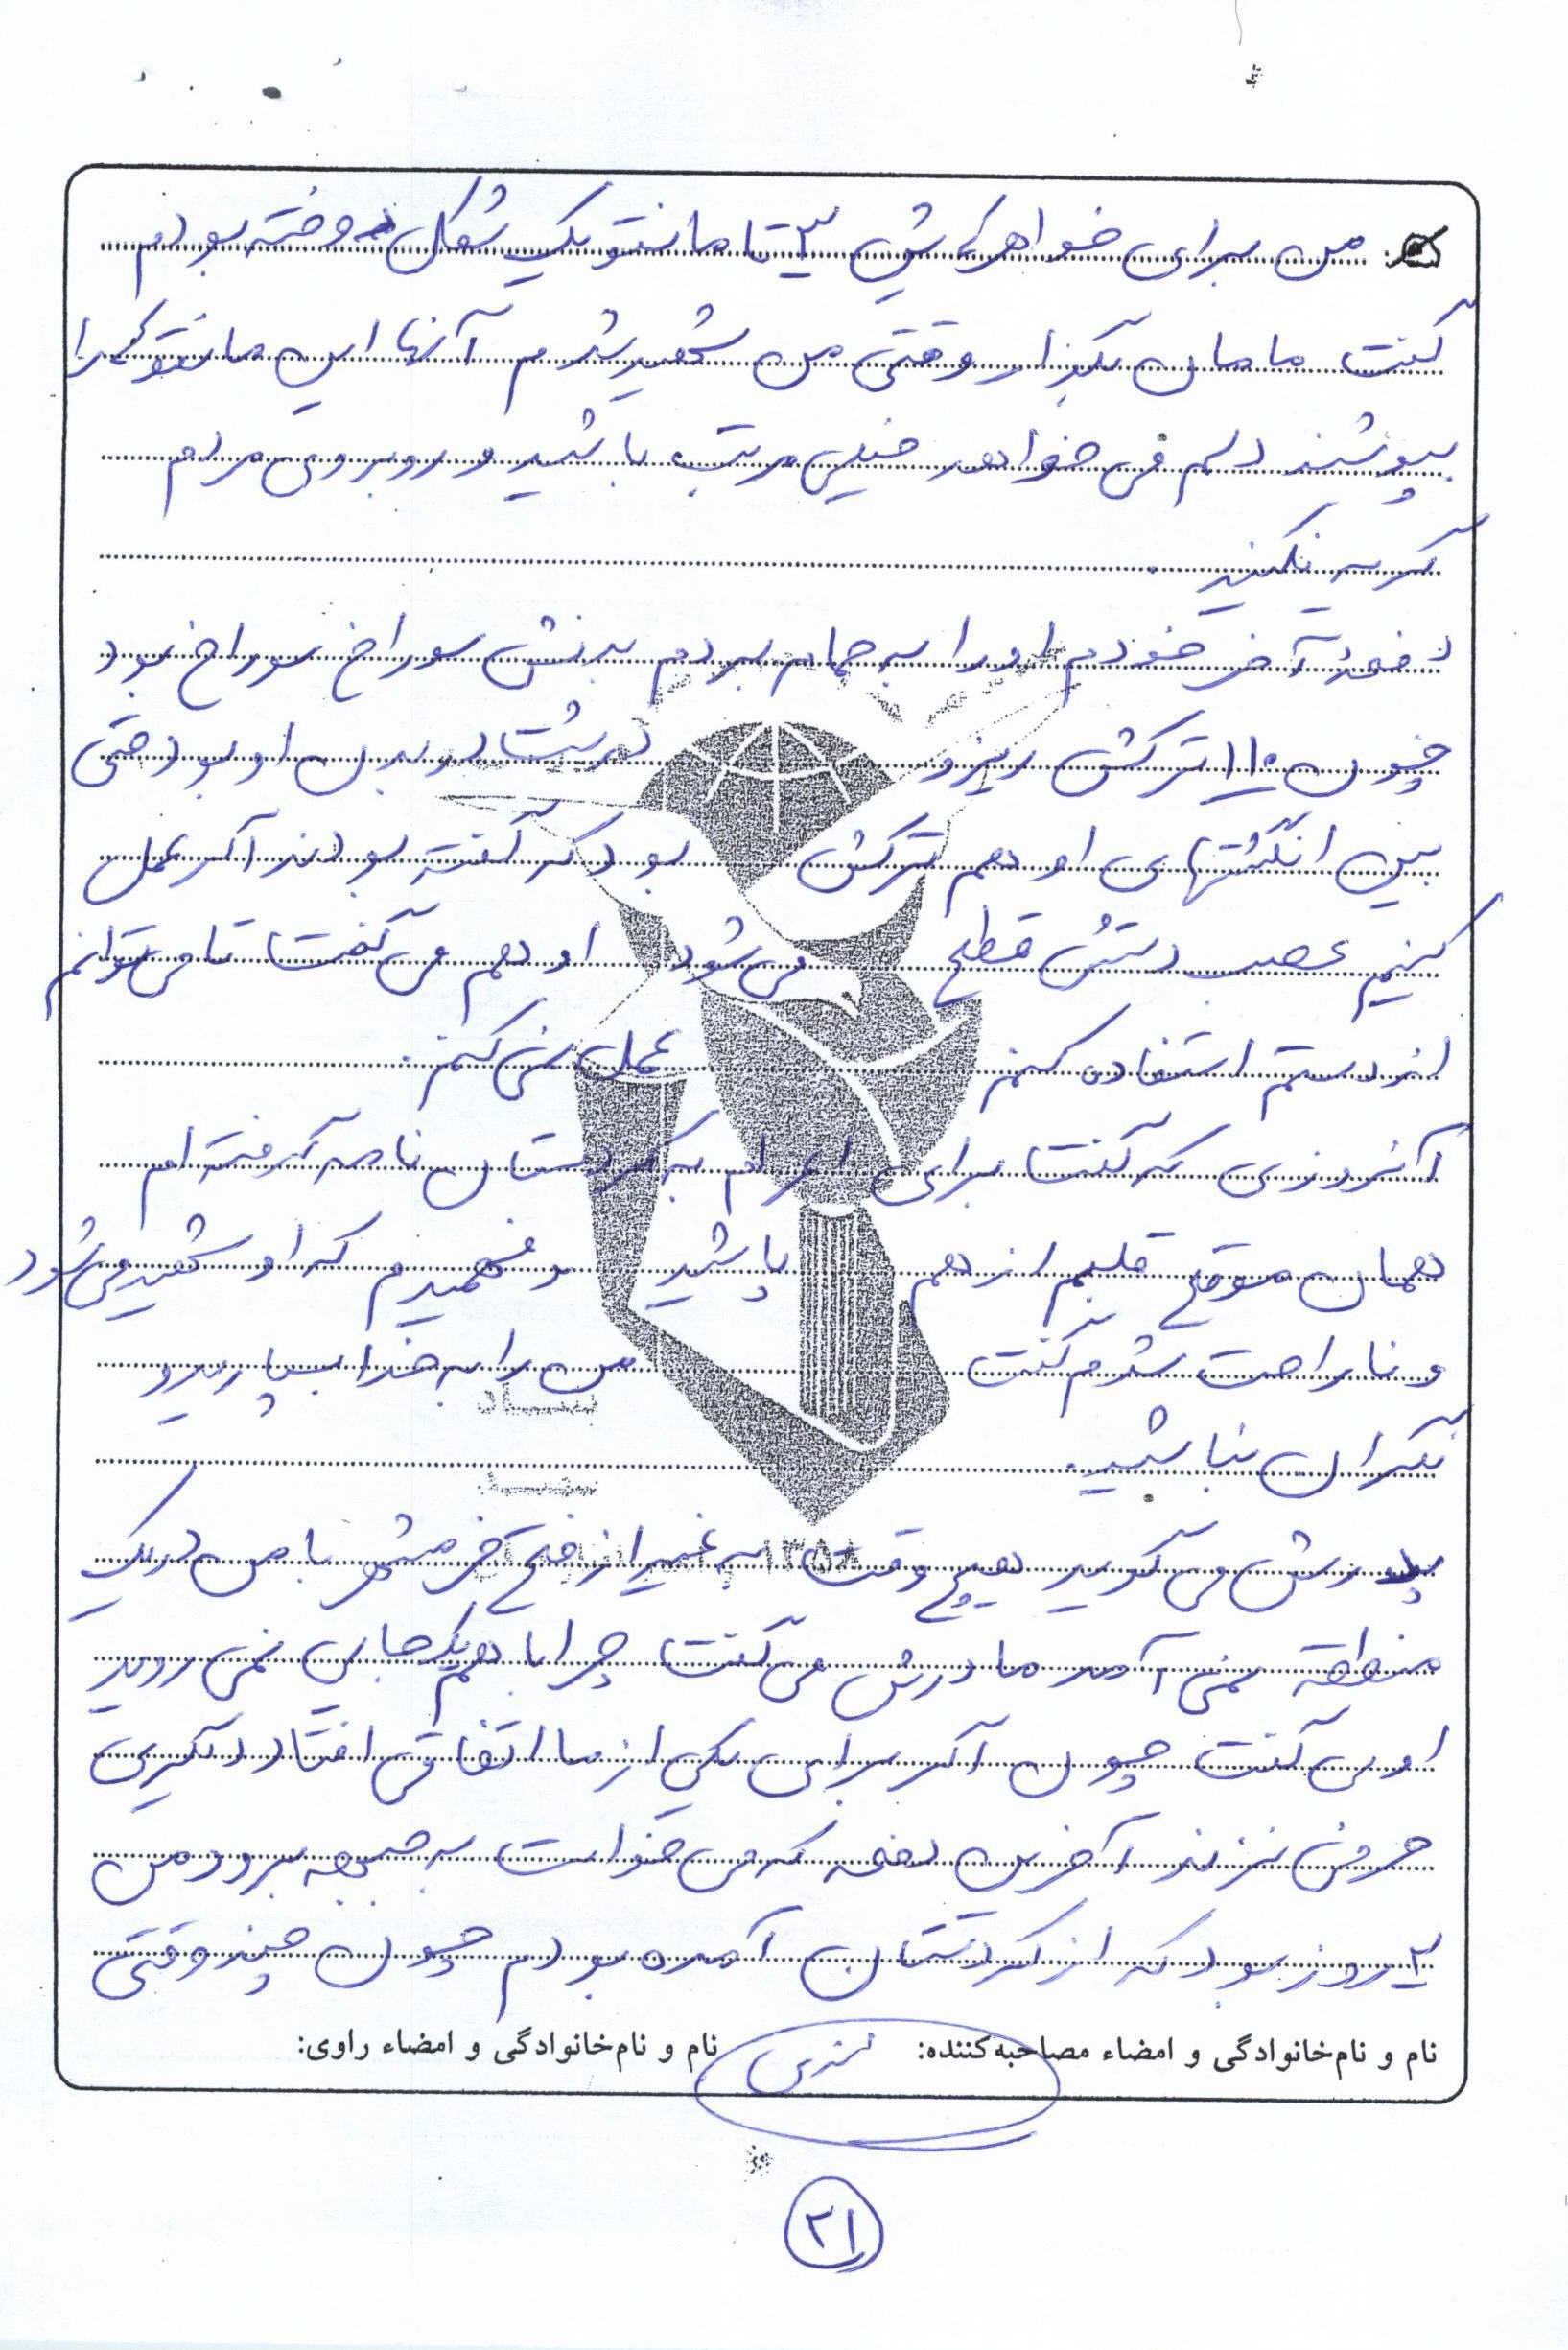 من برای خواهرهایش ۳ تا مانتو یک شکل دوخته بودم
گفت مامان بگذار وقتی من شهید شدم آنها این مانتوها را
بپوشند دلم می خواهد خیلی مرتب باشید و روبروی مردم
گریه نکنید.
دفعه آخر خودم او را به حمام بردم بدنش سوراخ سوراخ بود
چون ۱۱۰ ترکش ریز و درشت در بدن او بود حتی
بین انگشتهای او هم ترکش بود که گفته بودند اگر عمل
کنیم عصب دستش قطع می شود او هم می گفت تا می توانم
از دستم استفاده کنم عمل نمی کنم.
آنروزی که گفت برای اعزام به کردستان نامه گرفته ام
همان موقع قلبم از هم پاشید و فهمیدم که او شهید می شود
و ناراحت شدم گفت من را به خدا بسپارید و
نگران نباشید.
پدرش می گوید هیچ وقت به غیر از فتح خرمشهر با من در یک
منطقه نمی آمد مادرش می گفت چرا با هم یک جایی نمی روید
او می گفت چون اگر برای یکی از ما اتفاقی افتاد دیگری
حرفی نزند آخرین دفعه که می خواست به جبهه برود من
۲ روز بود که از کردستان آمده بودم چون چند وقتی
نام و نام‌خانوادگی و امضاء مصاحبه‌کننده:
نام و نام‌خانوادگی و امضاء راوی:
۲۱
بنیاد
۱۳۵۸